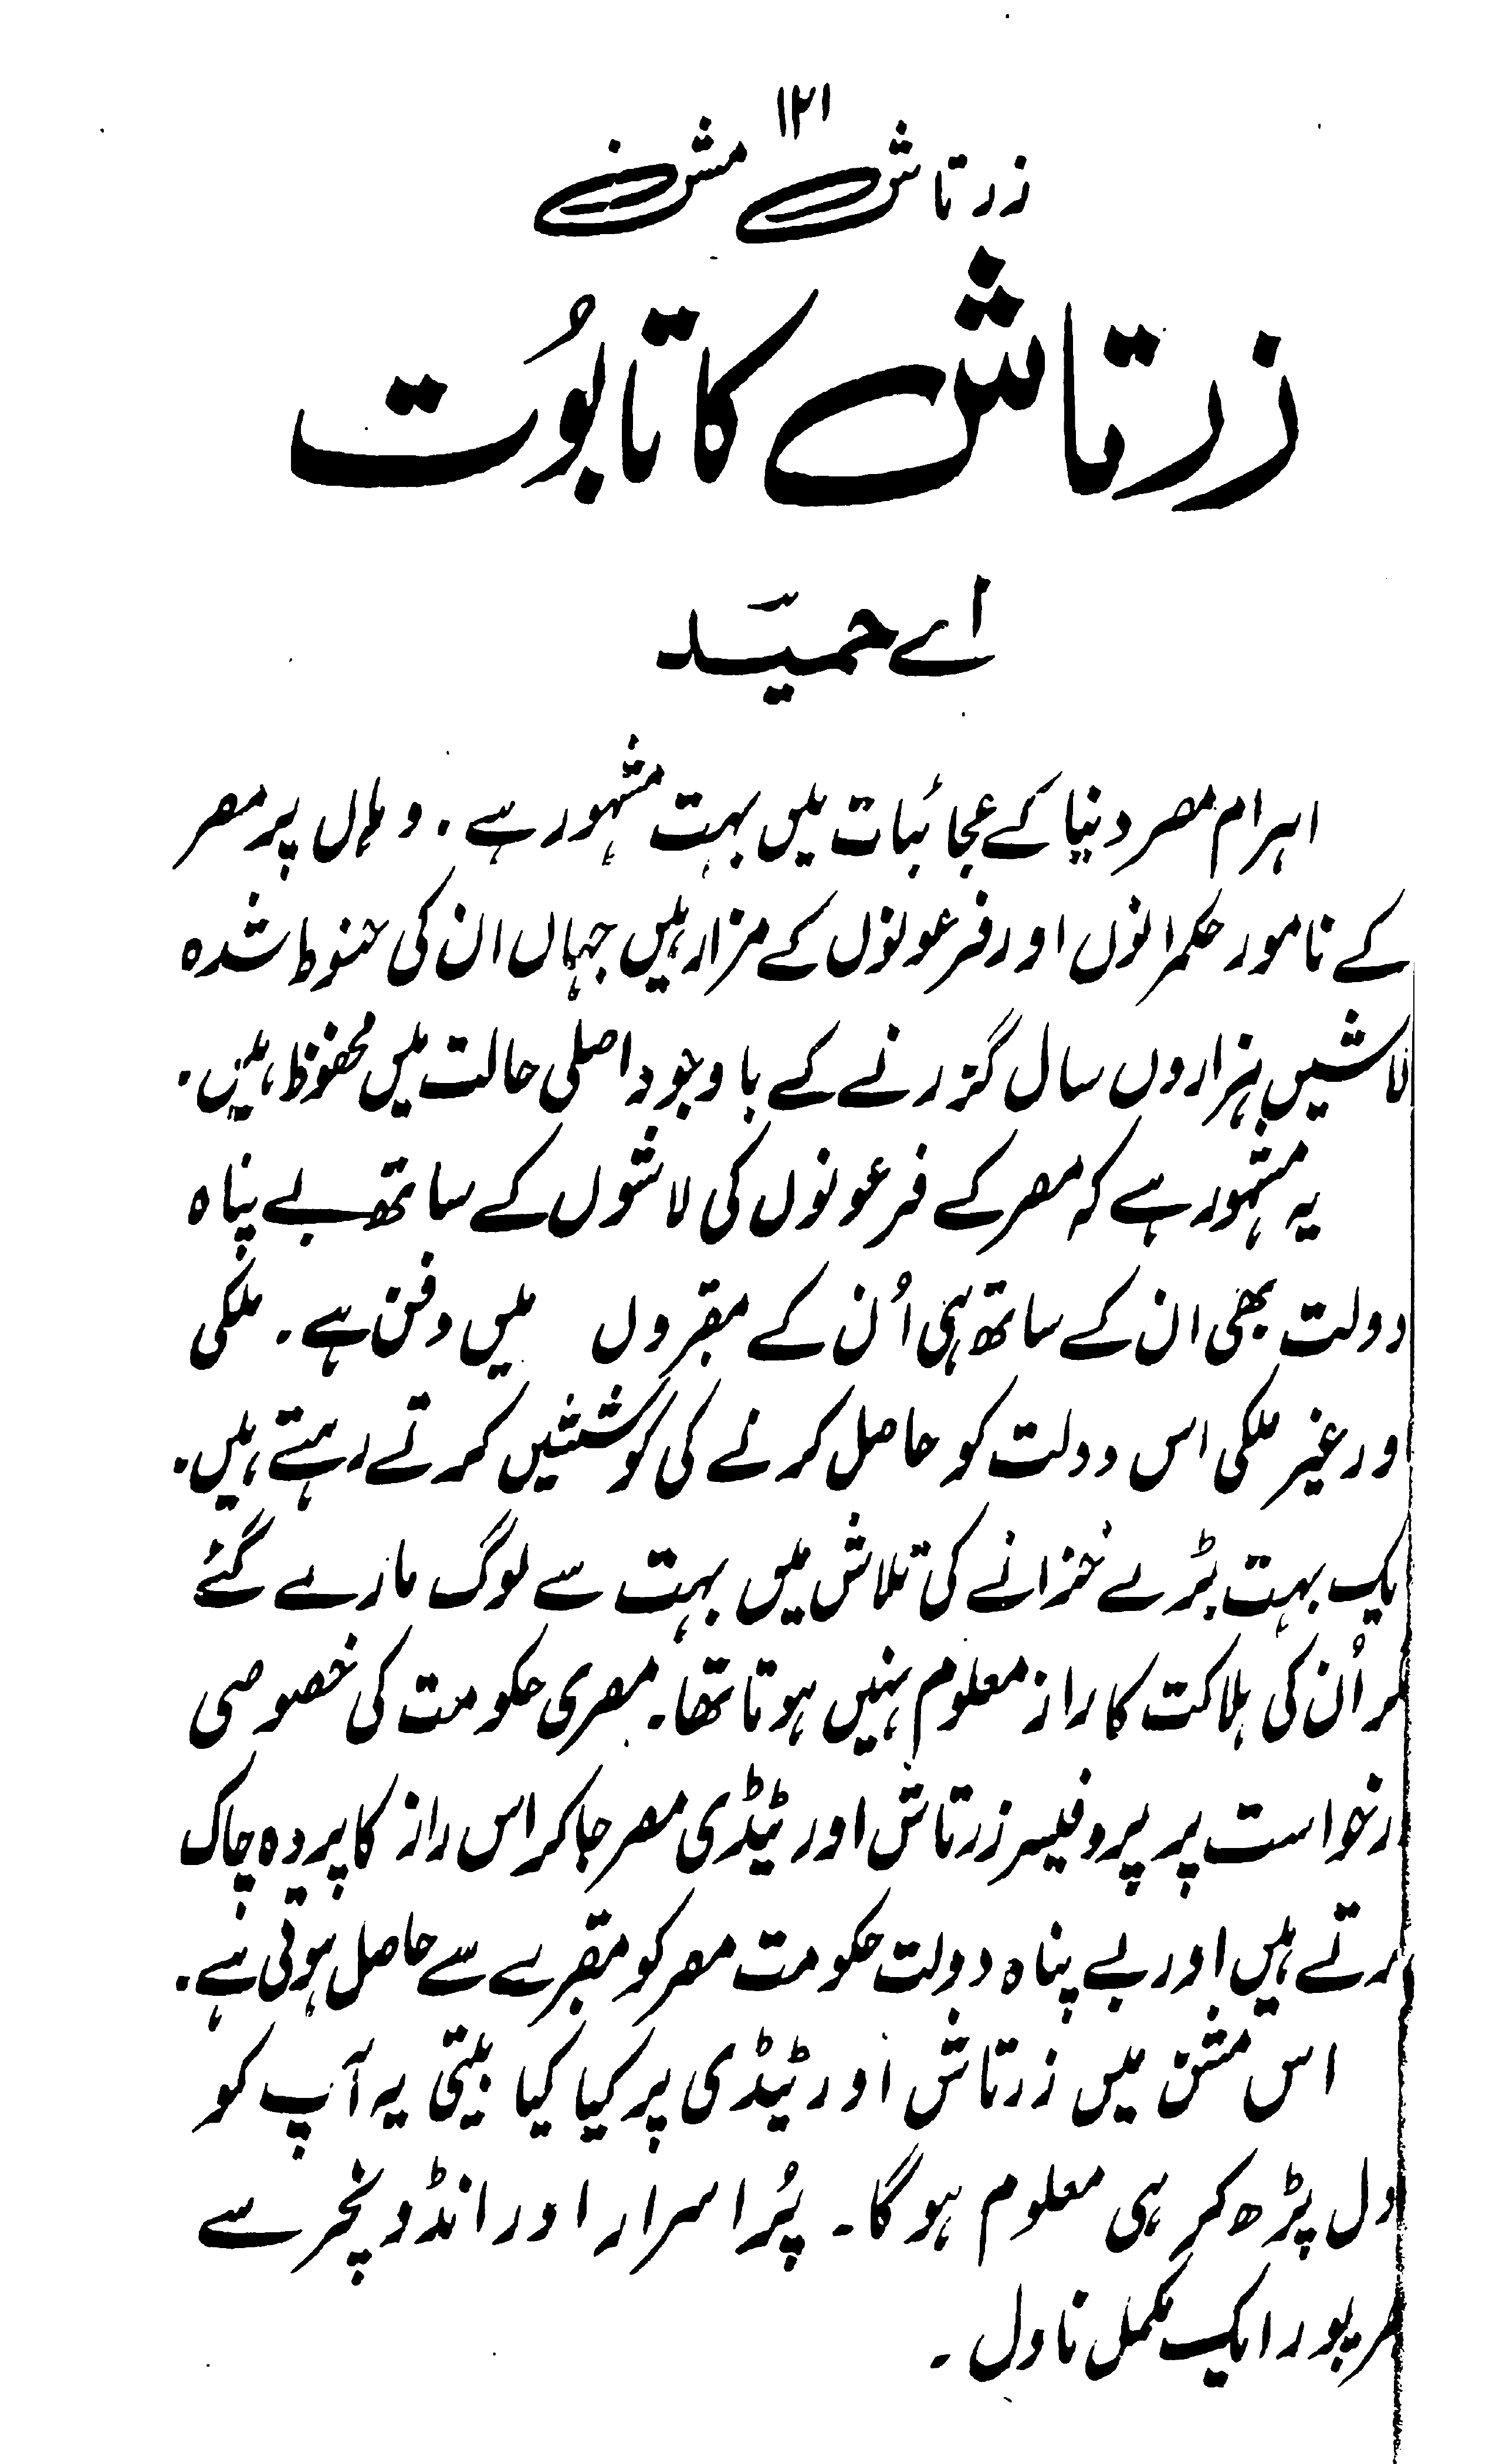 ۱۲۱
زرتاش مشن
زرتاش کا تابُوت
اے حمیَد
اہرام مصر دنیا کے عجائبات میں بہت مشہور ہے۔ وہاں پر مصر
کے نامور حکمرانوں اور فرعونوں کے مزار ہیں جہاں ان کی حنوط شدہ
لاشیں ہزاروں سال گزرنے کے باوجود اصلی حالت میں محفوظ ہیں۔
یہ مشہور ہے کہ مصر کے فرعونوں کی لاشوں کے ساتھ بے پناہ
دولت بھی ان کے ساتھ ہی اُن کے مقبروں میں دفن ہے۔ ملکی
ور غیر ملکی اس دولت کو حاصل کرنے کی کوششیں کرتے رہتے ہیں۔
یک بہت بڑے خزانے کی تلاش میں بہت سے لوگ مارے گئے
گر اُن کی ہلاکت کا راز معلوم نہیں ہوتا تھا۔ مصری حکومت کی خصوصی
رخواست پر پروفیسر زرتاش اور ٹیڈی مصر جا کر اس راز کا پردہ چاک
رتے ہیں اور بے پناہ دولت حکومت مصر کو مقبرے سے حاصل ہوتی ہے۔
اس مشن میں زرتاش اور ٹیڈی پر کیا کیا بیتی یہ آپ کو
ول پڑھ کر ہی معلوم ہو گا۔ پُراسرار اور انڈونچر سے
ھرپور ایک مکمل ناول۔